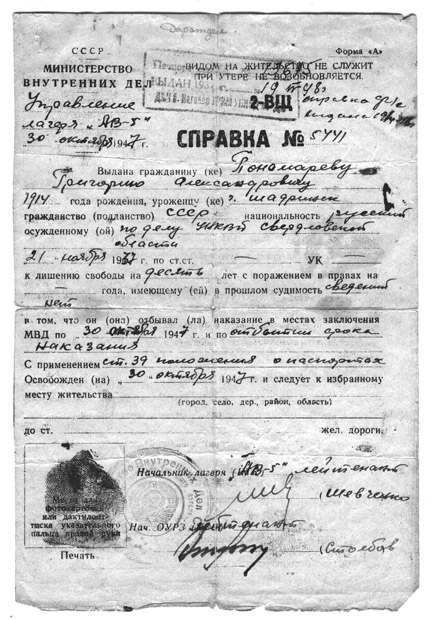 СССР
Форма «А»
МИНИСТЕРСТВО
ВНУТРЕННИХ ДЕЛ
ВИДОМ НА ЖИТЕЛЬСТВО НЕ СЛУЖИТ
ПРИ УТЕРЕ НЕ ВОЗОБНОВЛЯЕТСЯ.
2-ВЩ
Управление
лагеря "АВ-5"
30 октября 1947
СПРАВКА № 5441
Выдана гражданину (ке) Пономареву
Григорию Александровичу
1914 года рождения, уроженцу (ке) г. Шадринск
гражданство (подданство) СССР национальность русский
осужденному (ой) по делу УНКВД Свердловской
области
21 ноября 1937 по ст.ст. — УК —
к лишению свободы на десять лет с поражением в правах на
— года, имеющему (ей) в прошлом судимость сведений
нет
в том, что он (она) отбывал (ла) наказание в местах заключения
МВД по 30 октября 1947 и по отбытии срока
наказания
С применением ст. 39 положения о паспортах
Освобожден (на) "30" октября 1947 и следует к избранному
месту жительства
(город, село, дер., район, область)
до ст. жел. дороги.
Место для
фотокарточки
или дактилот-
тиска указательного
пальца правой руки
Печать
Начальник лагеря "АВ-5" лейтенант
Шевченко
Нач. ОУРЗ лейтенант
(Столбов